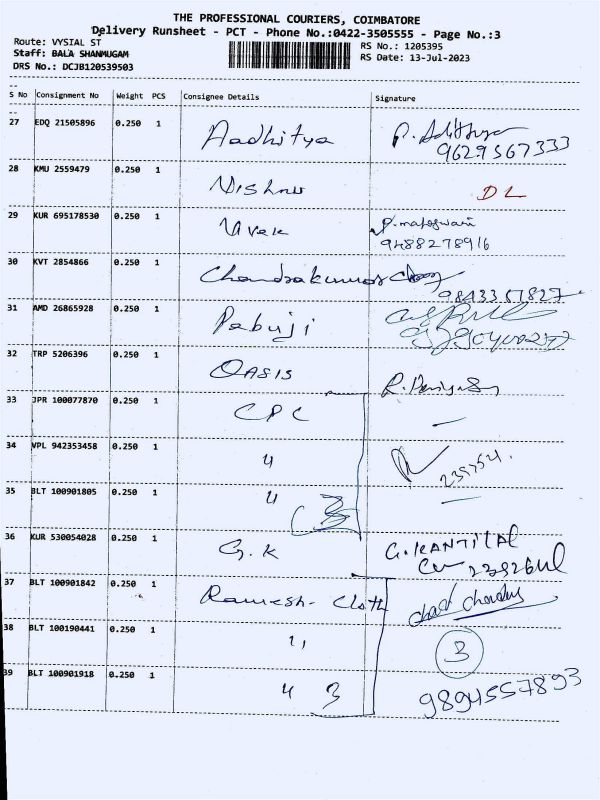 THE PROFESSIONAL COURIERS, COIMBATORE
Delivery Runsheet - PCT - Phone No.:0422-3505555 - Page No.:3
Route: VYSIAL ST RS No.: 1205395
Staff: BALA SHANMUGAM RS Date: 13-Jul-2023
DRS No.: DCJB120539503
S No Consignment No Weight PCS Consignee Details Signature
27 EDQ 21505896 0.250 1 Aadhitya P. Adithya
9629567333
28 KMU 2559479 0.250 1 Vishnu DL
29 KUR 695178530 0.250 1 Vivek P. maheswari
9488278916
30 KVT 2854866 0.250 1 Chandrakumar
9843367827
31 AMD 26865928 0.250 1 Pabuji
32 TRP 5206396 0.250 1 OASIS R. Periyasamy
33 JPR 100077870 0.250 1 CPC —
34 VPL 942353458 0.250 1 "
35 BLT 100901805 0.250 1 " 3 —
36 KUR 530054028 0.250 1 G.K G. KANTILAL
37 BLT 100901842 0.250 1 Ramesh Cloth
38 BLT 100190441 0.250 1 " 3
39 BLT 100901918 0.250 1 " 3 9894557893